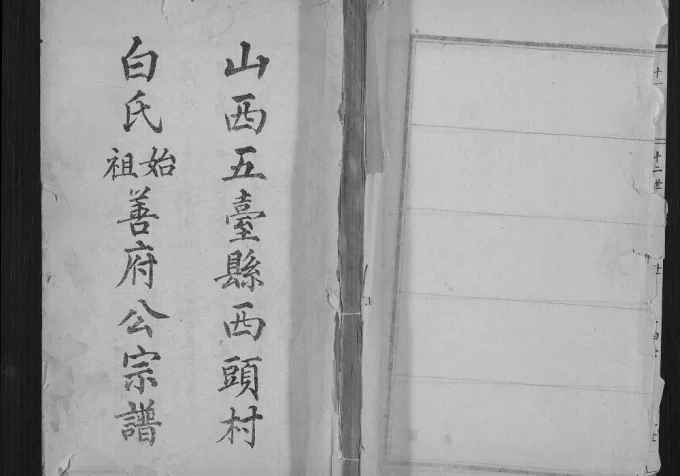 山西五臺縣西頭村
白氏始祖善府公宗譜
十二世